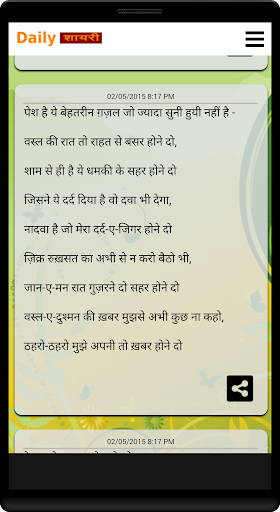 Daily शायरी
02/05/2015 8:17 PM
पेश है ये बेहतरीन ग़ज़ल जो ज्यादा सुनी हुयी नहीं है -
वस्ल की रात तो राहत से बसर होने दो,
शाम से ही है ये धमकी के सहर होने दो
जिसने ये दर्द दिया है वो दवा भी देगा,
नादवा है जो मेरा दर्द-ए-जिगर होने दो
ज़िक्र रुख़सत का अभी से न करो बैठो भी,
जान-ए-मन रात गुज़रने दो सहर होने दो
वस्ल-ए-दुश्मन की ख़बर मुझसे अभी कुछ ना कहो,
ठहरो-ठहरो मुझे अपनी तो ख़बर होने दो
02/05/2015 8:17 PM